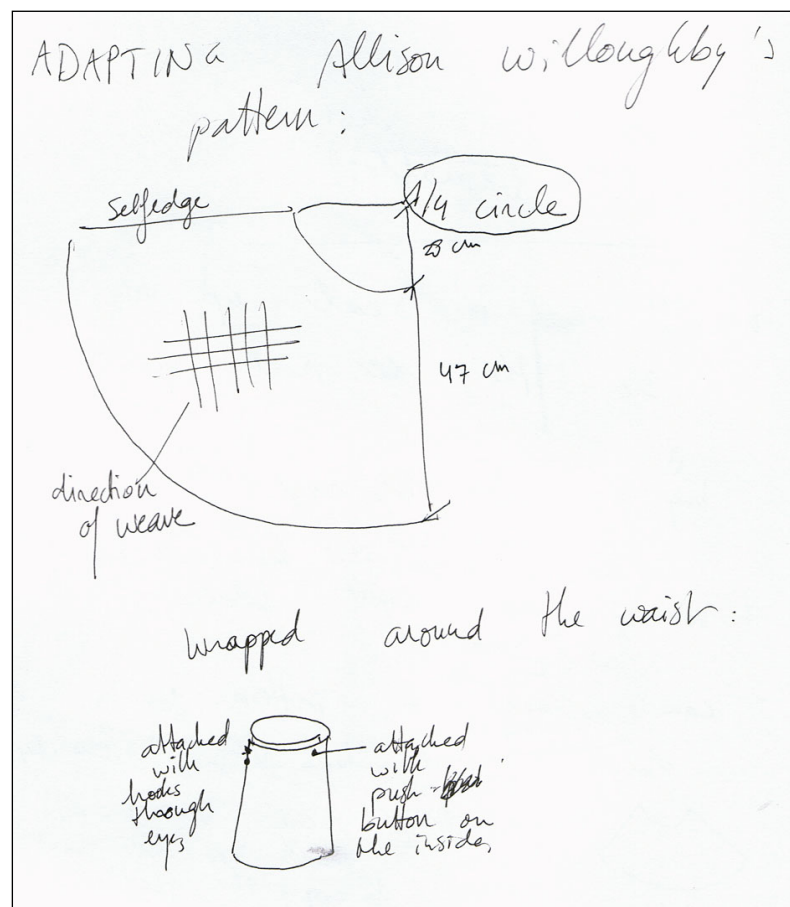 ADAPTING Allison willoughby's
pattern:
selfedge
1/4 circle
cm
47 cm
direction
of weave
wrapped around the waist:
attached
with
hooks
through
eyes
attached
with
push-
button on
the inside,